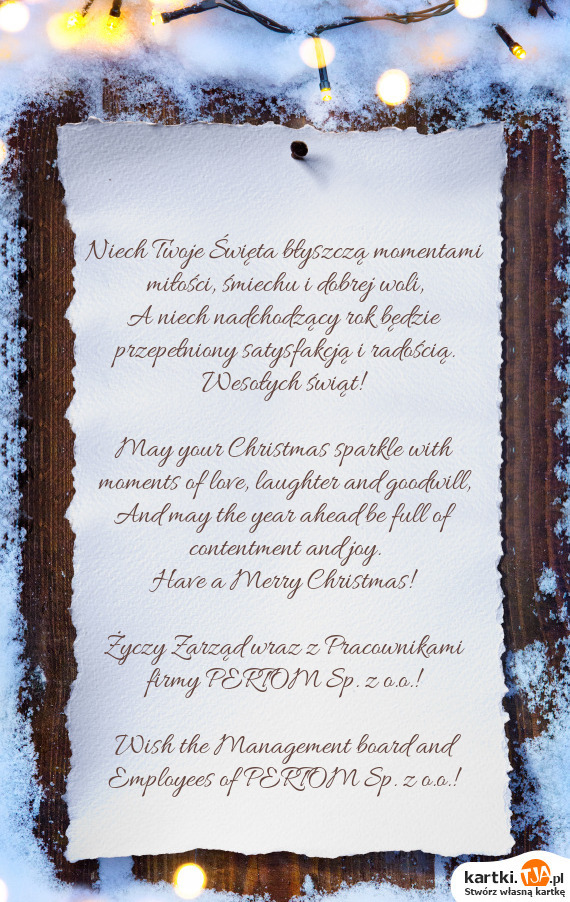 Niech Twoje Święta błyszczą momentami
miłości, śmiechu i dobrej woli,
A niech nadchodzący rok będzie
przepełniony satysfakcją i radością.
Wesołych świąt!
May your Christmas sparkle with
moments of love, laughter and goodwill,
And may the year ahead be full of
contentment and joy.
Have a Merry Christmas!
Życzy Zarząd wraz z Pracownikami
firmy PERTOM Sp. z o.o.!
Wish the Management board and
Employees of PERTOM Sp. z o.o.!
kartki.TJA.pl
Stwórz własną kartkę